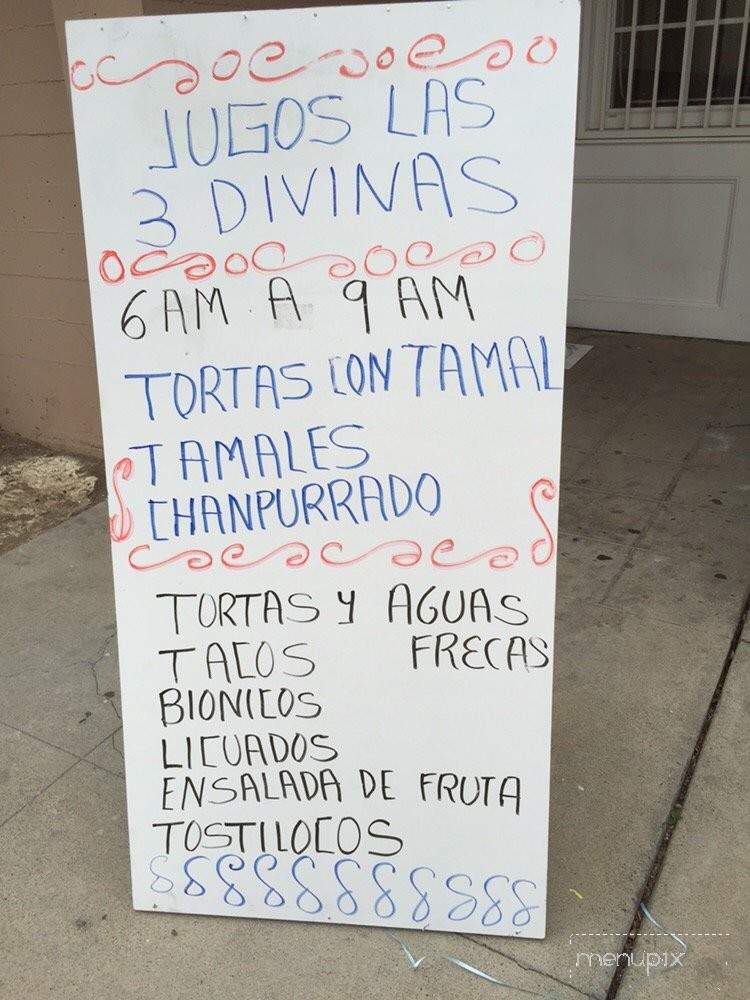 JUGOS LAS
3 DIVINAS
6 AM A 9 AM
TORTAS CON TAMAL
TAMALES
CHANPURRADO
TORTAS Y AGUAS
TACOS FRECAS
BIONICOS
LICUADOS
ENSALADA DE FRUTA
TOSTILOCOS
menupix